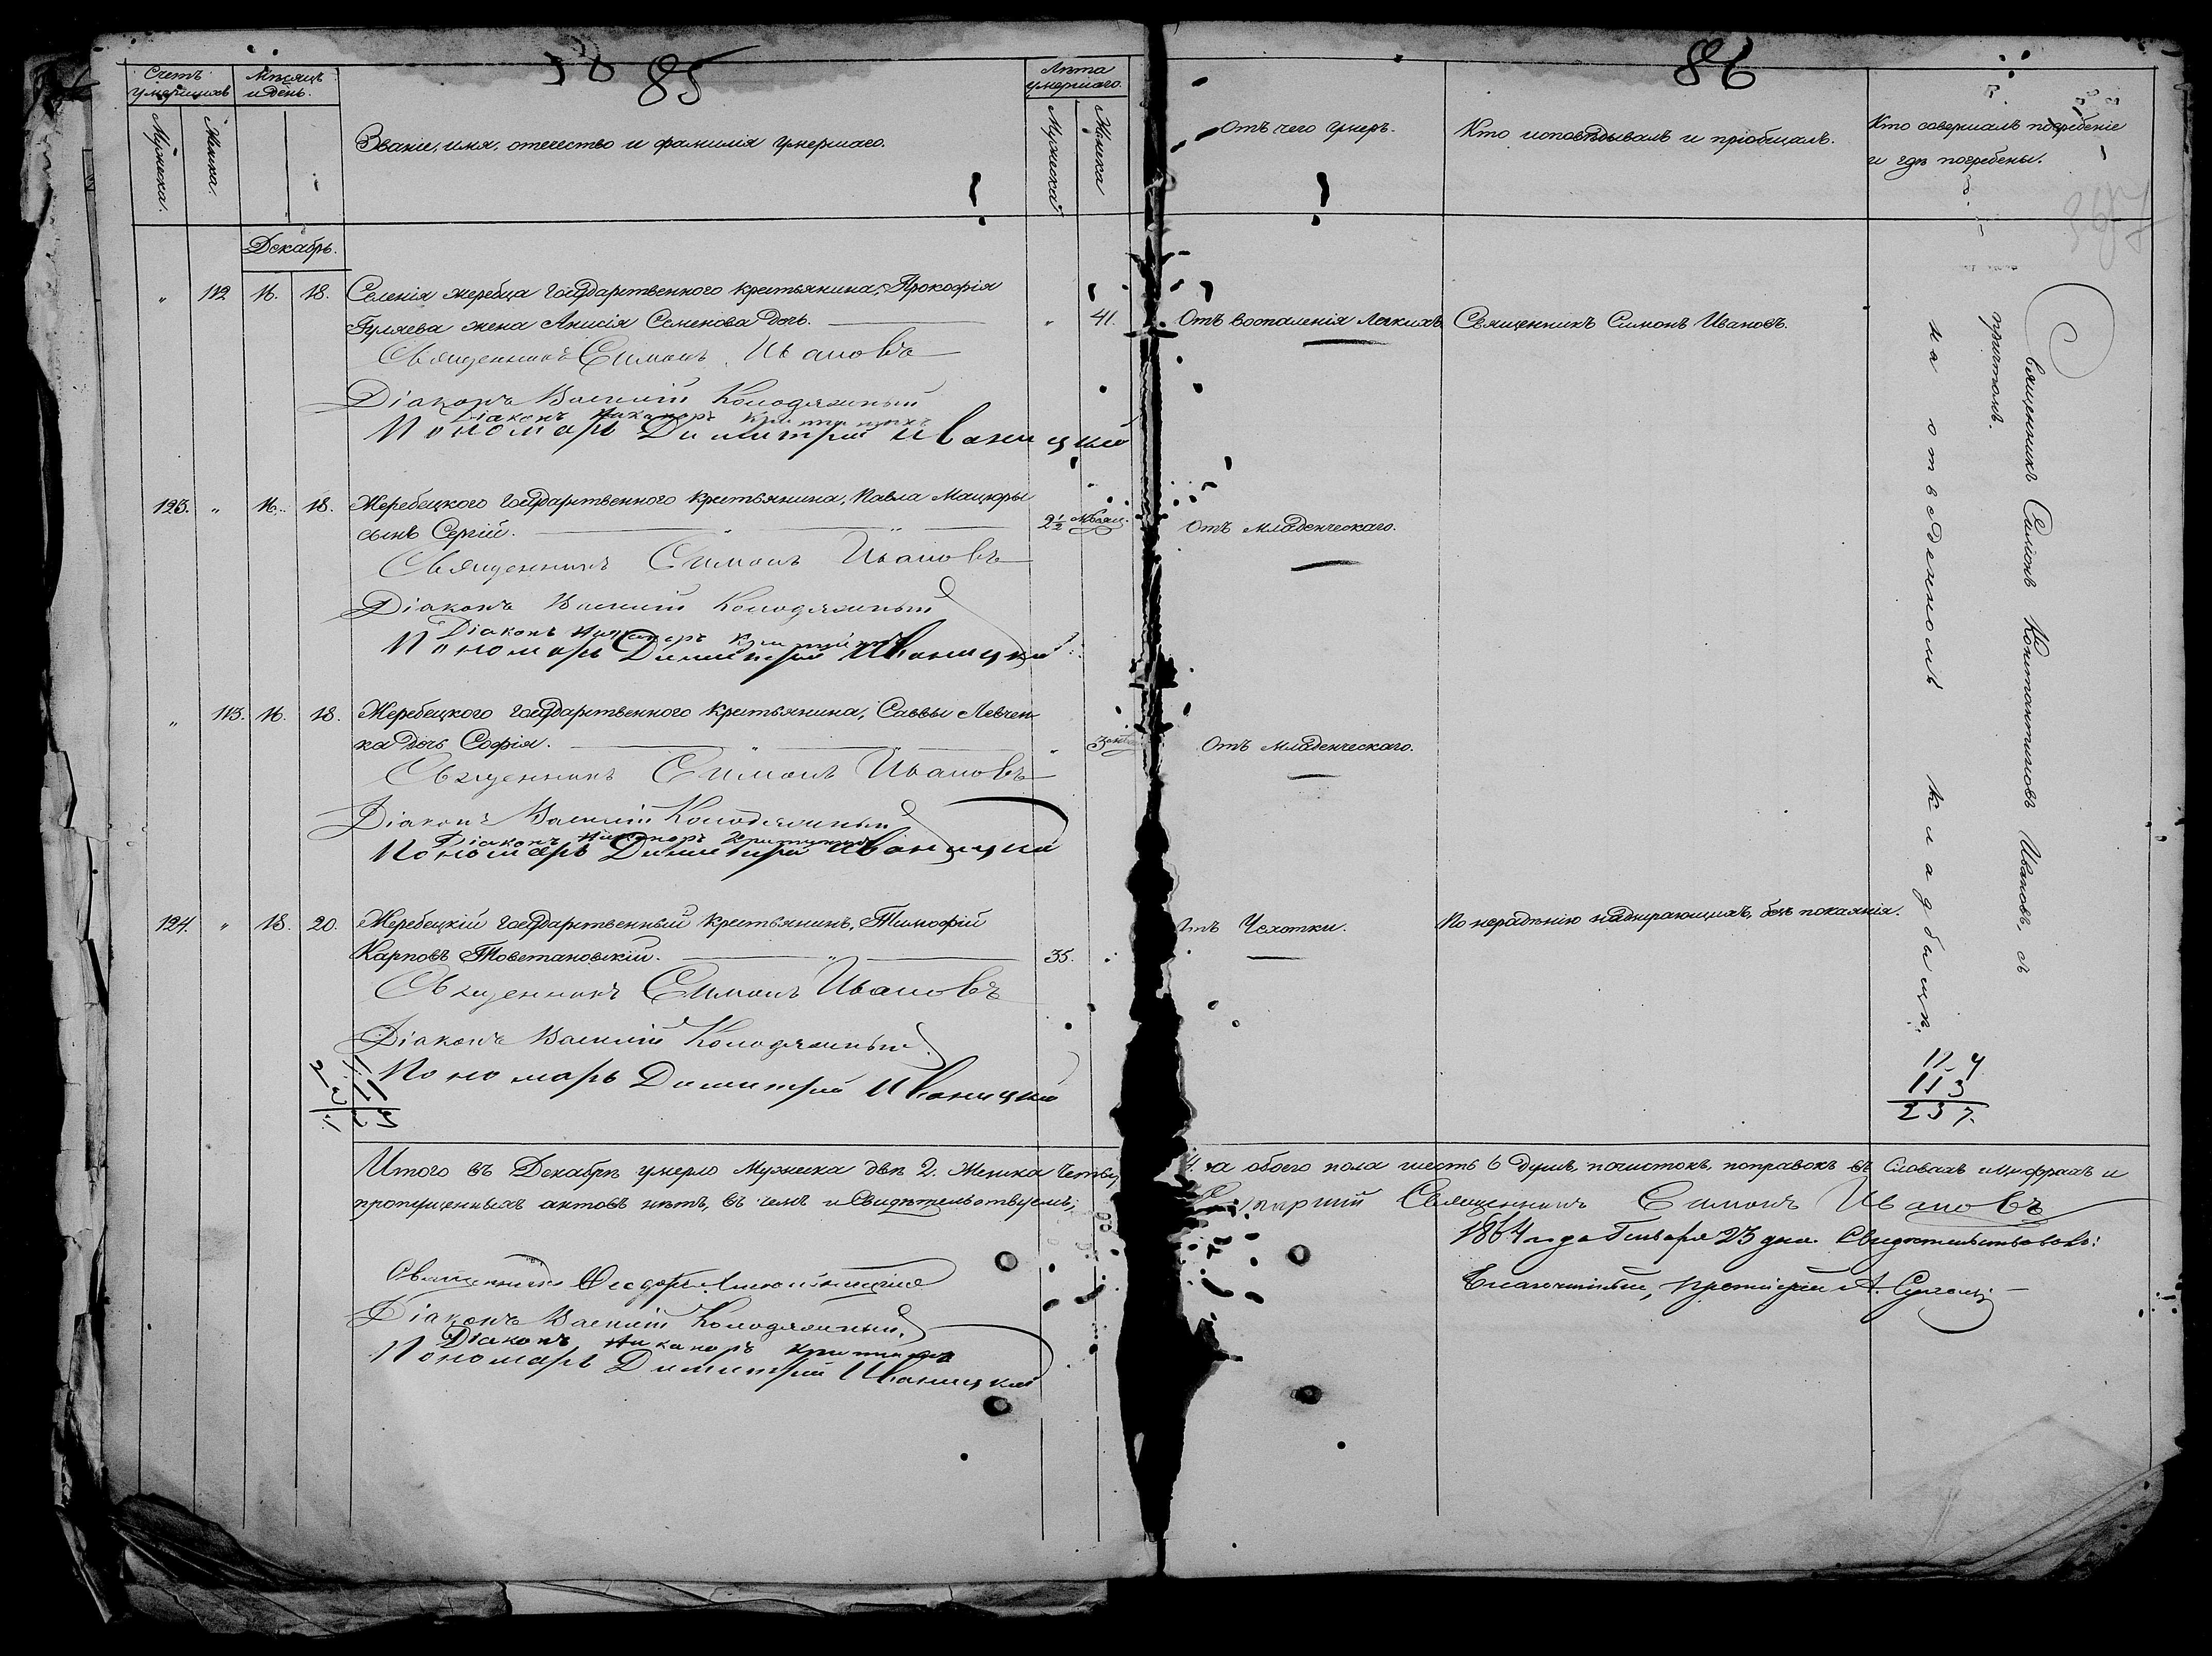 85
86
Счетъ умершихъ
Мѣсяцъ и день.
Мужеска.
Женска.
Званіе, имя, отечество и фамилія умершаго.
Лѣта умершаго.
Мужеска
Женска
Отъ чего умеръ.
Кто исповѣдывалъ и пріобщалъ.
Кто совершалъ погребеніе
и гдѣ погребены.
Декабрь.
" 112 16. 18. Селенія жеребца Государственного крестьянина, Прокофія
Гуляева жена Анисія Семенова дочь. " 41. Отъ воспаленія Легкихъ Священникъ Симонъ Ивановъ.
Священникъ Симонъ Ивановъ
Діаконъ Василій Колодяжный
Діаконъ Никаноръ
Пономарь Димитрій Иваницкій
123. " 16. 18. Жеребецкого Государственного крестьянина, Павла Мацюры
сынъ Сергій. 2½ мѣсяц. Отъ младенческаго.
Священникъ Симонъ Ивановъ
Діаконъ Василій Колодяжный
Діаконъ Никаноръ
Пономарь Димитрій Иваницкій
" 113. 16. 18. Жеребецкого государственного крестьянина, Саввы Левчен-
ка дочь Софія. " 3 Отъ младенческаго.
Священникъ Симонъ Ивановъ
Діаконъ Василій Колодяжный
Діаконъ Никаноръ
Пономарь Димитрій Иваницкій
124. " 18. 20. Жеребецкій государственный крестьянинъ, Тимофій
Карповъ 35. Отъ Чахотки. По нерадѣнію надзирающихъ, безъ покаянія.
Священникъ Симонъ Ивановъ
Діаконъ Василій Колодяжный
Пономарь Димитрій Иваницкій
Священникъ Симонъ Константиновъ Ивановъ, съ
причтомъ.
на отведенномъ кладбищѣ.
113
237.
Итого въ Декабрѣ умерло Мужеска двѣ 2. Женска Четыр 4. а обоего пола шесть 6 душъ, почистокъ, поправокъ въ словахъ и цифрахъ и
пропущенныхъ актовъ нѣтъ, въ чемъ и Свидѣтельствуемъ;
Священникъ Симонъ Ивановъ
1864 года Генваря 23 дня. Свидѣтельствовалъ:
Благочинный, протоіерей А.
Священникъ Феодоръ
Діаконъ Василій Колодяжный
Діаконъ Никаноръ
Пономарь Димитрій Иваницкій